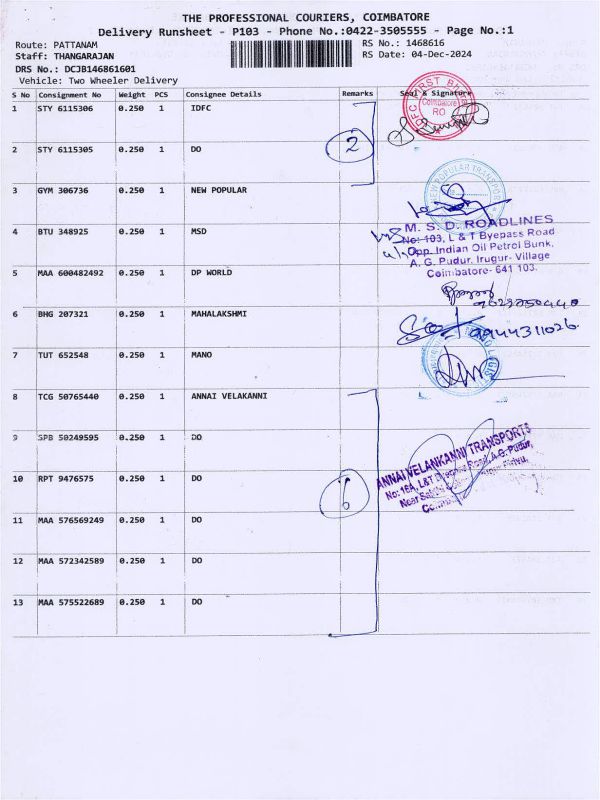 THE PROFESSIONAL COURIERS, COIMBATORE
Delivery Runsheet - P103 - Phone No.:0422-3505555 - Page No.:1
Route: PATTANAM RS No.: 1468616
Staff: THANGARAJAN RS Date: 04-Dec-2024
DRS No.: DCJB146861601
Vehicle: Two Wheeler Delivery
S No Consignment No Weight PCS Consignee Details Remarks Seal & Signature
1 STY 6115306 0.250 1 IDFC
Coimbatore
RO
2 STY 6115305 0.250 1 DO 2
3 GYM 306736 0.250 1 NEW POPULAR
NEW POPULAR TRANSPORT
4 BTU 348925 0.250 1 MSD
M. S. D. ROADLINES
No: 103, L & T Byepass Road
Opp. Indian Oil Petrol Bunk,
A. G. Pudur, Irugur- Village
Coimbatore- 641 103.
5 MAA 600482492 0.250 1 DP WORLD
6 BHG 207321 0.250 1 MAHALAKSHMI
9944311026
7 TUT 652548 0.250 1 MANO
8 TCG 50765440 0.250 1 ANNAI VELAKANNI
9 SPB 50249595 0.250 1 DO
ANNAI VELANKANNI TRANSPORTS
No: 16A, L&T Byepass Road, A.G. Pudur,
10 RPT 9476575 0.250 1 DO 6
11 MAA 576569249 0.250 1 DO
12 MAA 572342589 0.250 1 DO
13 MAA 575522689 0.250 1 DO